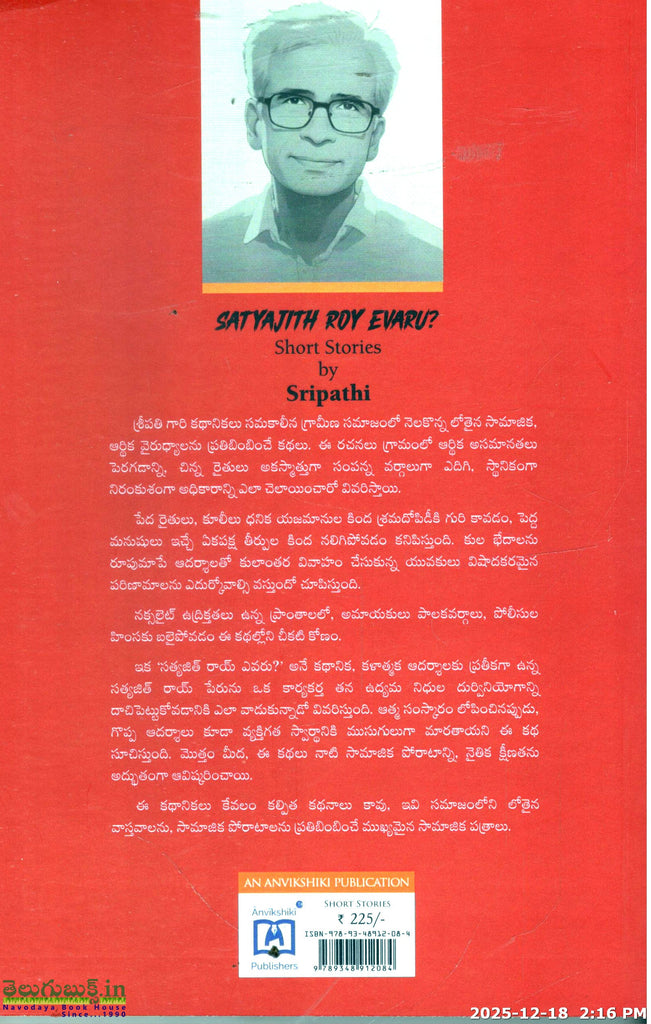 SATYAJITH ROY EVARU?
Short Stories
by
Sripathi
శ్రీపతి గారి కథానికలు సమకాలీన గ్రామీణ సమాజంలో నెలకొన్న లోతైన సామాజిక,
ఆర్థిక వైరుధ్యాలను ప్రతిబింబించే కథలు. ఈ రచనలు గ్రామంలో ఆర్థిక అసమానతలు
పెరగడాన్ని, చిన్న రైతులు అకస్మాత్తుగా సంపన్న వర్గాలుగా ఎదిగి, స్థానికంగా
నిరంకుశంగా అధికారాన్ని ఎలా చెలాయించారో వివరిస్తాయి.
పేద రైతులు, కూలీలు ధనిక యజమానుల కింద శ్రమదోపిడీకి గురి కావడం, పెద్ద
మనుషులు ఇచ్చే ఏకపక్ష తీర్పుల కింద నలిగిపోవడం కనిపిస్తుంది. కుల భేదాలను
రూపుమాపే ఆదర్శాలతో కులాంతర వివాహం చేసుకున్న యువకులు విషాదకరమైన
పరిణామాలను ఎదుర్కోవాల్సి వస్తుందో చూపిస్తుంది.
నక్సలైట్ ఉద్రిక్తతలు ఉన్న ప్రాంతాలలో, అమాయకులు పాలకవర్గాలు, పోలీసుల
హింసకు బలైపోవడం ఈ కథల్లోని చీకటి కోణం.
ఇక 'సత్యజిత్ రాయ్ ఎవరు?' అనే కథానిక, కళాత్మక ఆదర్శాలకు ప్రతీకగా ఉన్న
సత్యజిత్ రాయ్ పేరును ఒక కార్యకర్త తన ఉద్యమ నిధుల దుర్వినియోగాన్ని
దాచిపెట్టుకోవడానికి ఎలా వాడుకున్నాడో వివరిస్తుంది. ఆత్మ సంస్కారం లోపించినప్పుడు,
గొప్ప ఆదర్శాలు కూడా వ్యక్తిగత స్వార్థానికి ముసుగులుగా మారతాయని ఈ కథ
సూచిస్తుంది. మొత్తం మీద, ఈ కథలు నాటి సామాజిక పోరాటాన్ని, నైతిక క్షీణతను
అద్భుతంగా ఆవిష్కరించాయి.
ఈ కథానికలు కేవలం కల్పిత కథనాలు కావు, ఇవి సమాజంలోని లోతైన
వాస్తవాలను, సామాజిక పోరాటాలను ప్రతిబింబించే ముఖ్యమైన సామాజిక పత్రాలు.
AN ANVIKSHIKI PUBLICATION
Anvikshiki
Publishers
SHORT STORIES
₹ 225/-
ISBN-978-93-48912-08-4
9 789348 912084
తెలుగుబుక్స్.in
Navodaya Book House
Since...1990
2025-12-18 2:16 PM